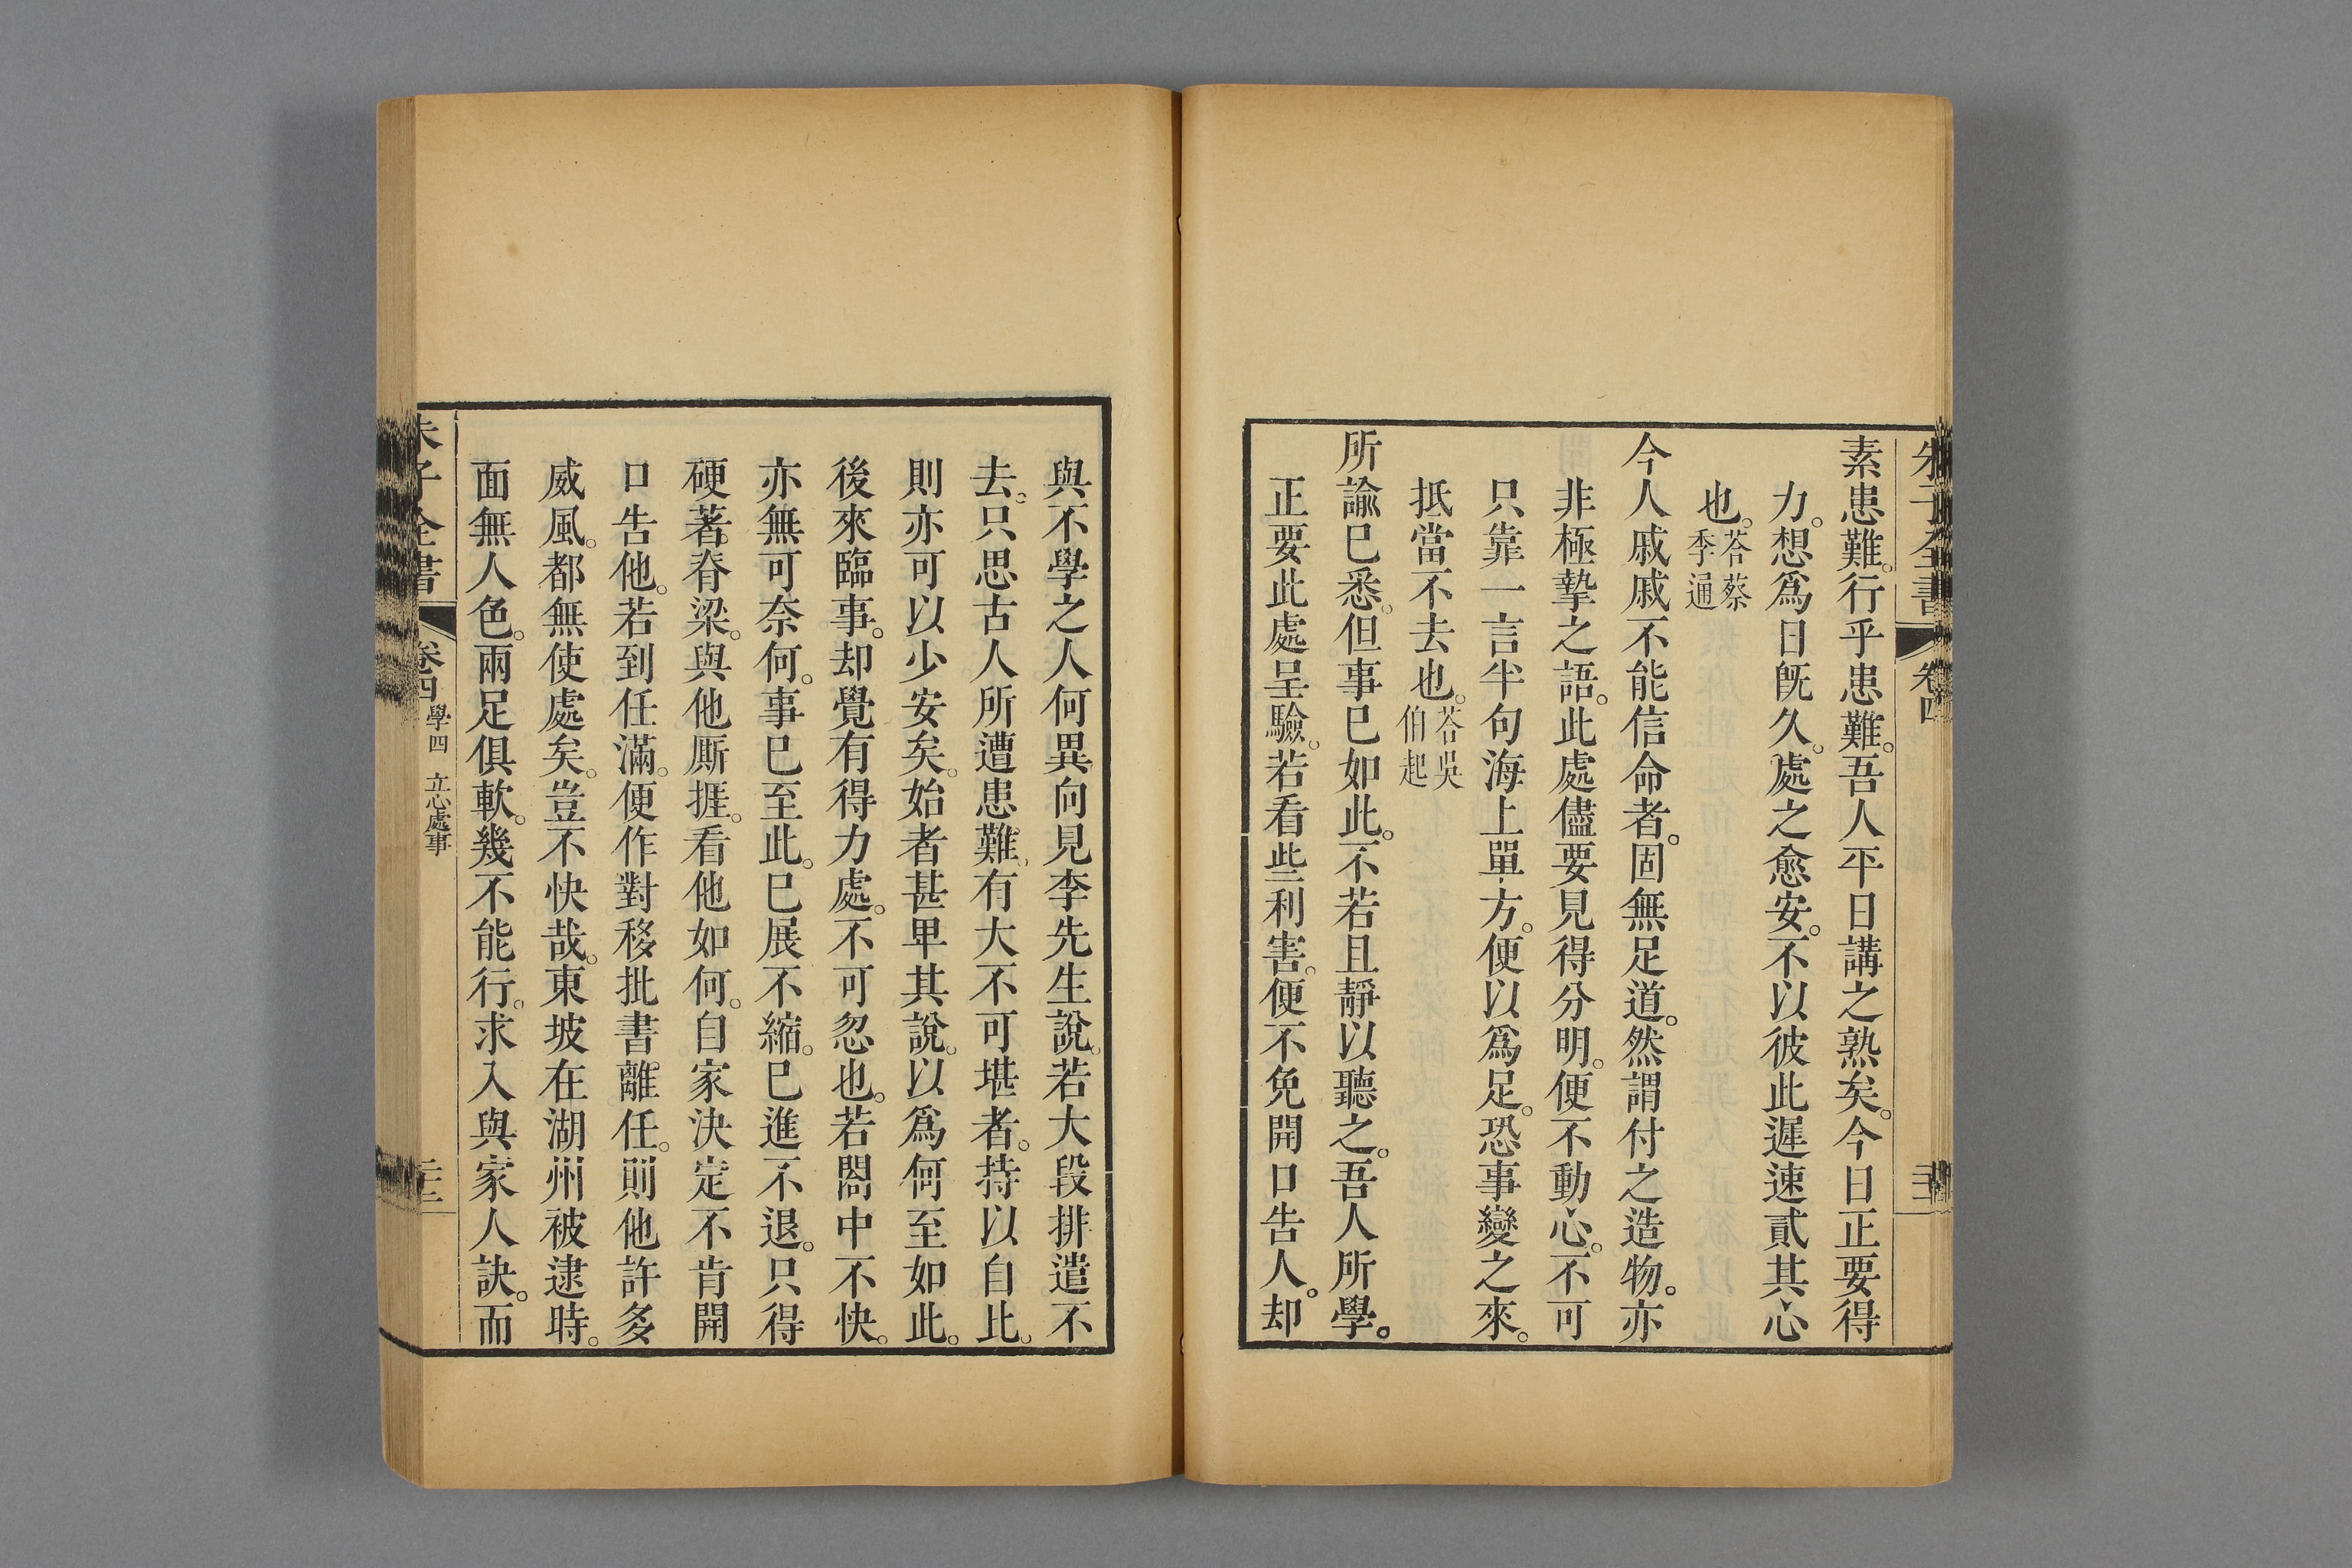 朱子全書 卷四
素患難。行乎患難。吾人平日講之熟矣。今日正要得
力。想爲日旣久。處之愈安。不以彼此遲速貳其心
也。荅蔡季通
今人戚戚不能信命者。固無足道。然謂付之造物。亦
非極摯之語。此處儘要見得分明。便不動心。不可
只靠一言半句海上單方。便以爲足。恐事變之來。
抵當不去也。荅吳伯起
所諭已悉。但事已如此。不若且靜以聽之。吾人所學。
正要此處呈驗。若看些利害。便不免開口告人。却
與不學之人何異。向見李先生說。若大段排遣不
去。只思古人所遭患難。有大不可堪者。持以自比。
則亦可以少安矣。始者甚卑其說。以爲何至如此。
後來臨事。却覺有得力處。不可忽也。若閤中不快。
亦無可奈何。事已至此。已展不縮。已進不退。只得
硬著脊梁。與他厮捱。看他如何。自家決定不肯開
口告他。若到任滿。便作對移批書離任。則他許多
威風。都無使處矣。豈不快哉。東坡在湖州被逮時。
面無人色。兩足俱軟。幾不能行。求入與家人訣。而
朱子全書 卷四 學四 立心處事